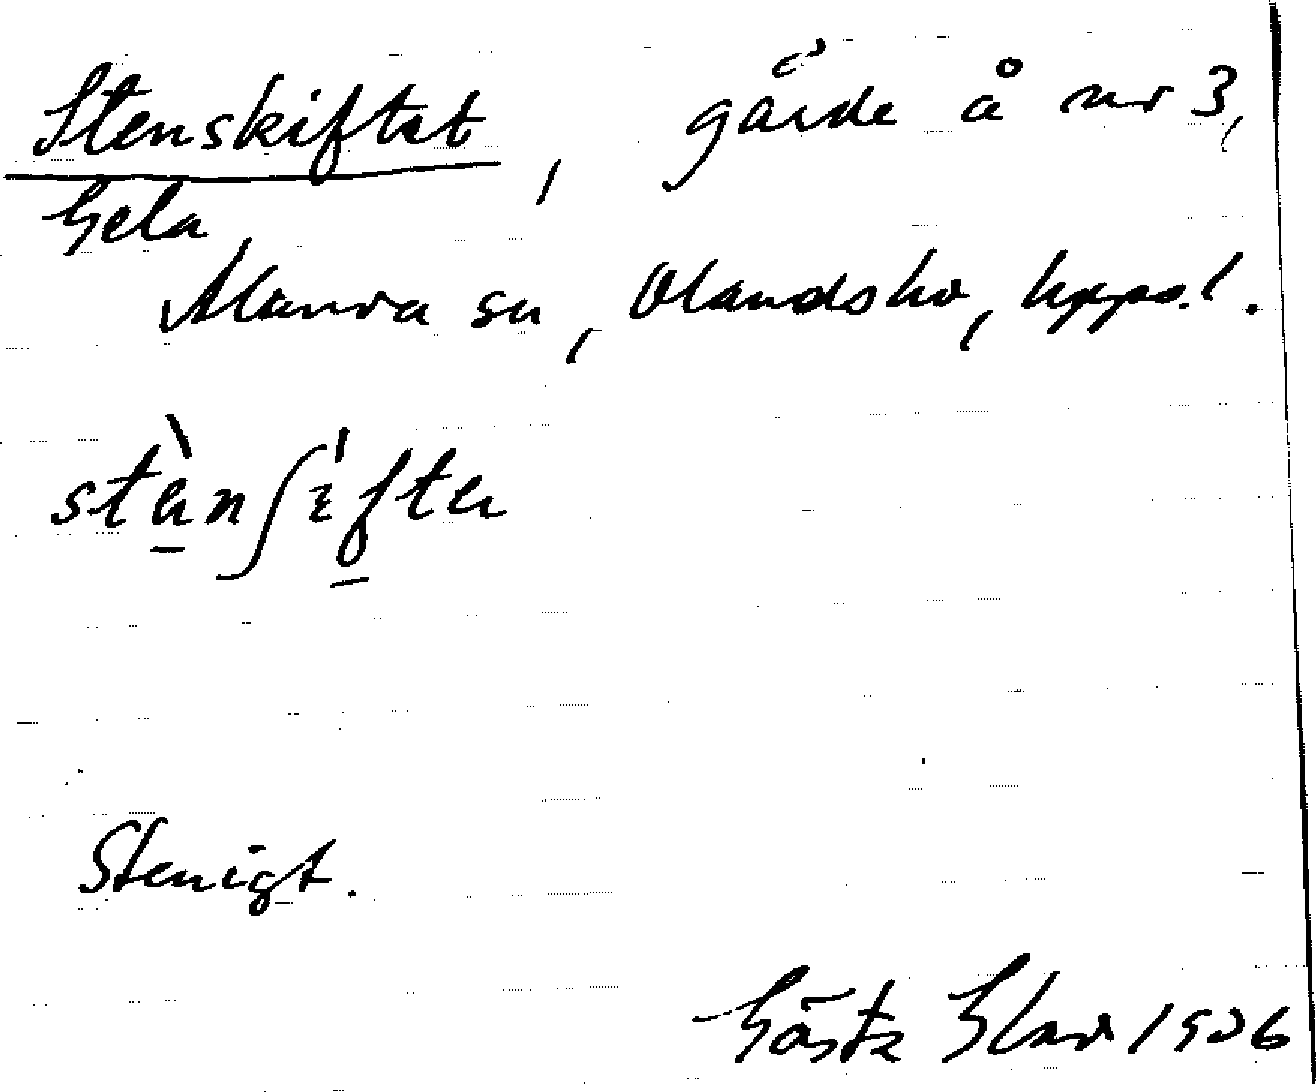 Stenskiftet, gärde å nr 3,
Gela
Alunda sn, Olandshd, Uppsl.
stènʃìftɛr
Stenigt.
Gösta 1926